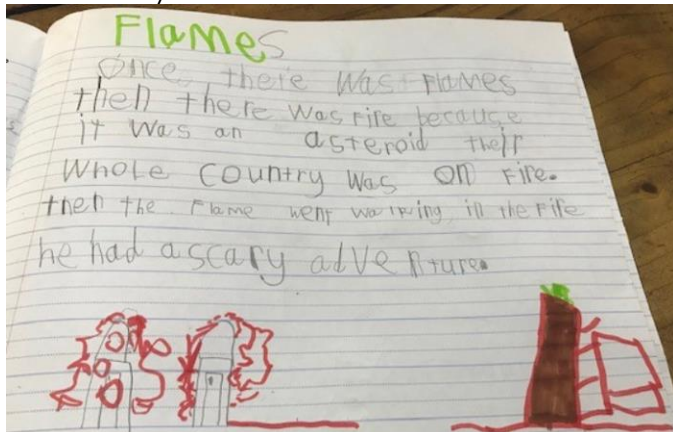 Flames
Once there was flames
then there was fire because
it was an asteroid their
whole country was on fire.
then the flame went walking in the fire
he had a scary adventure.